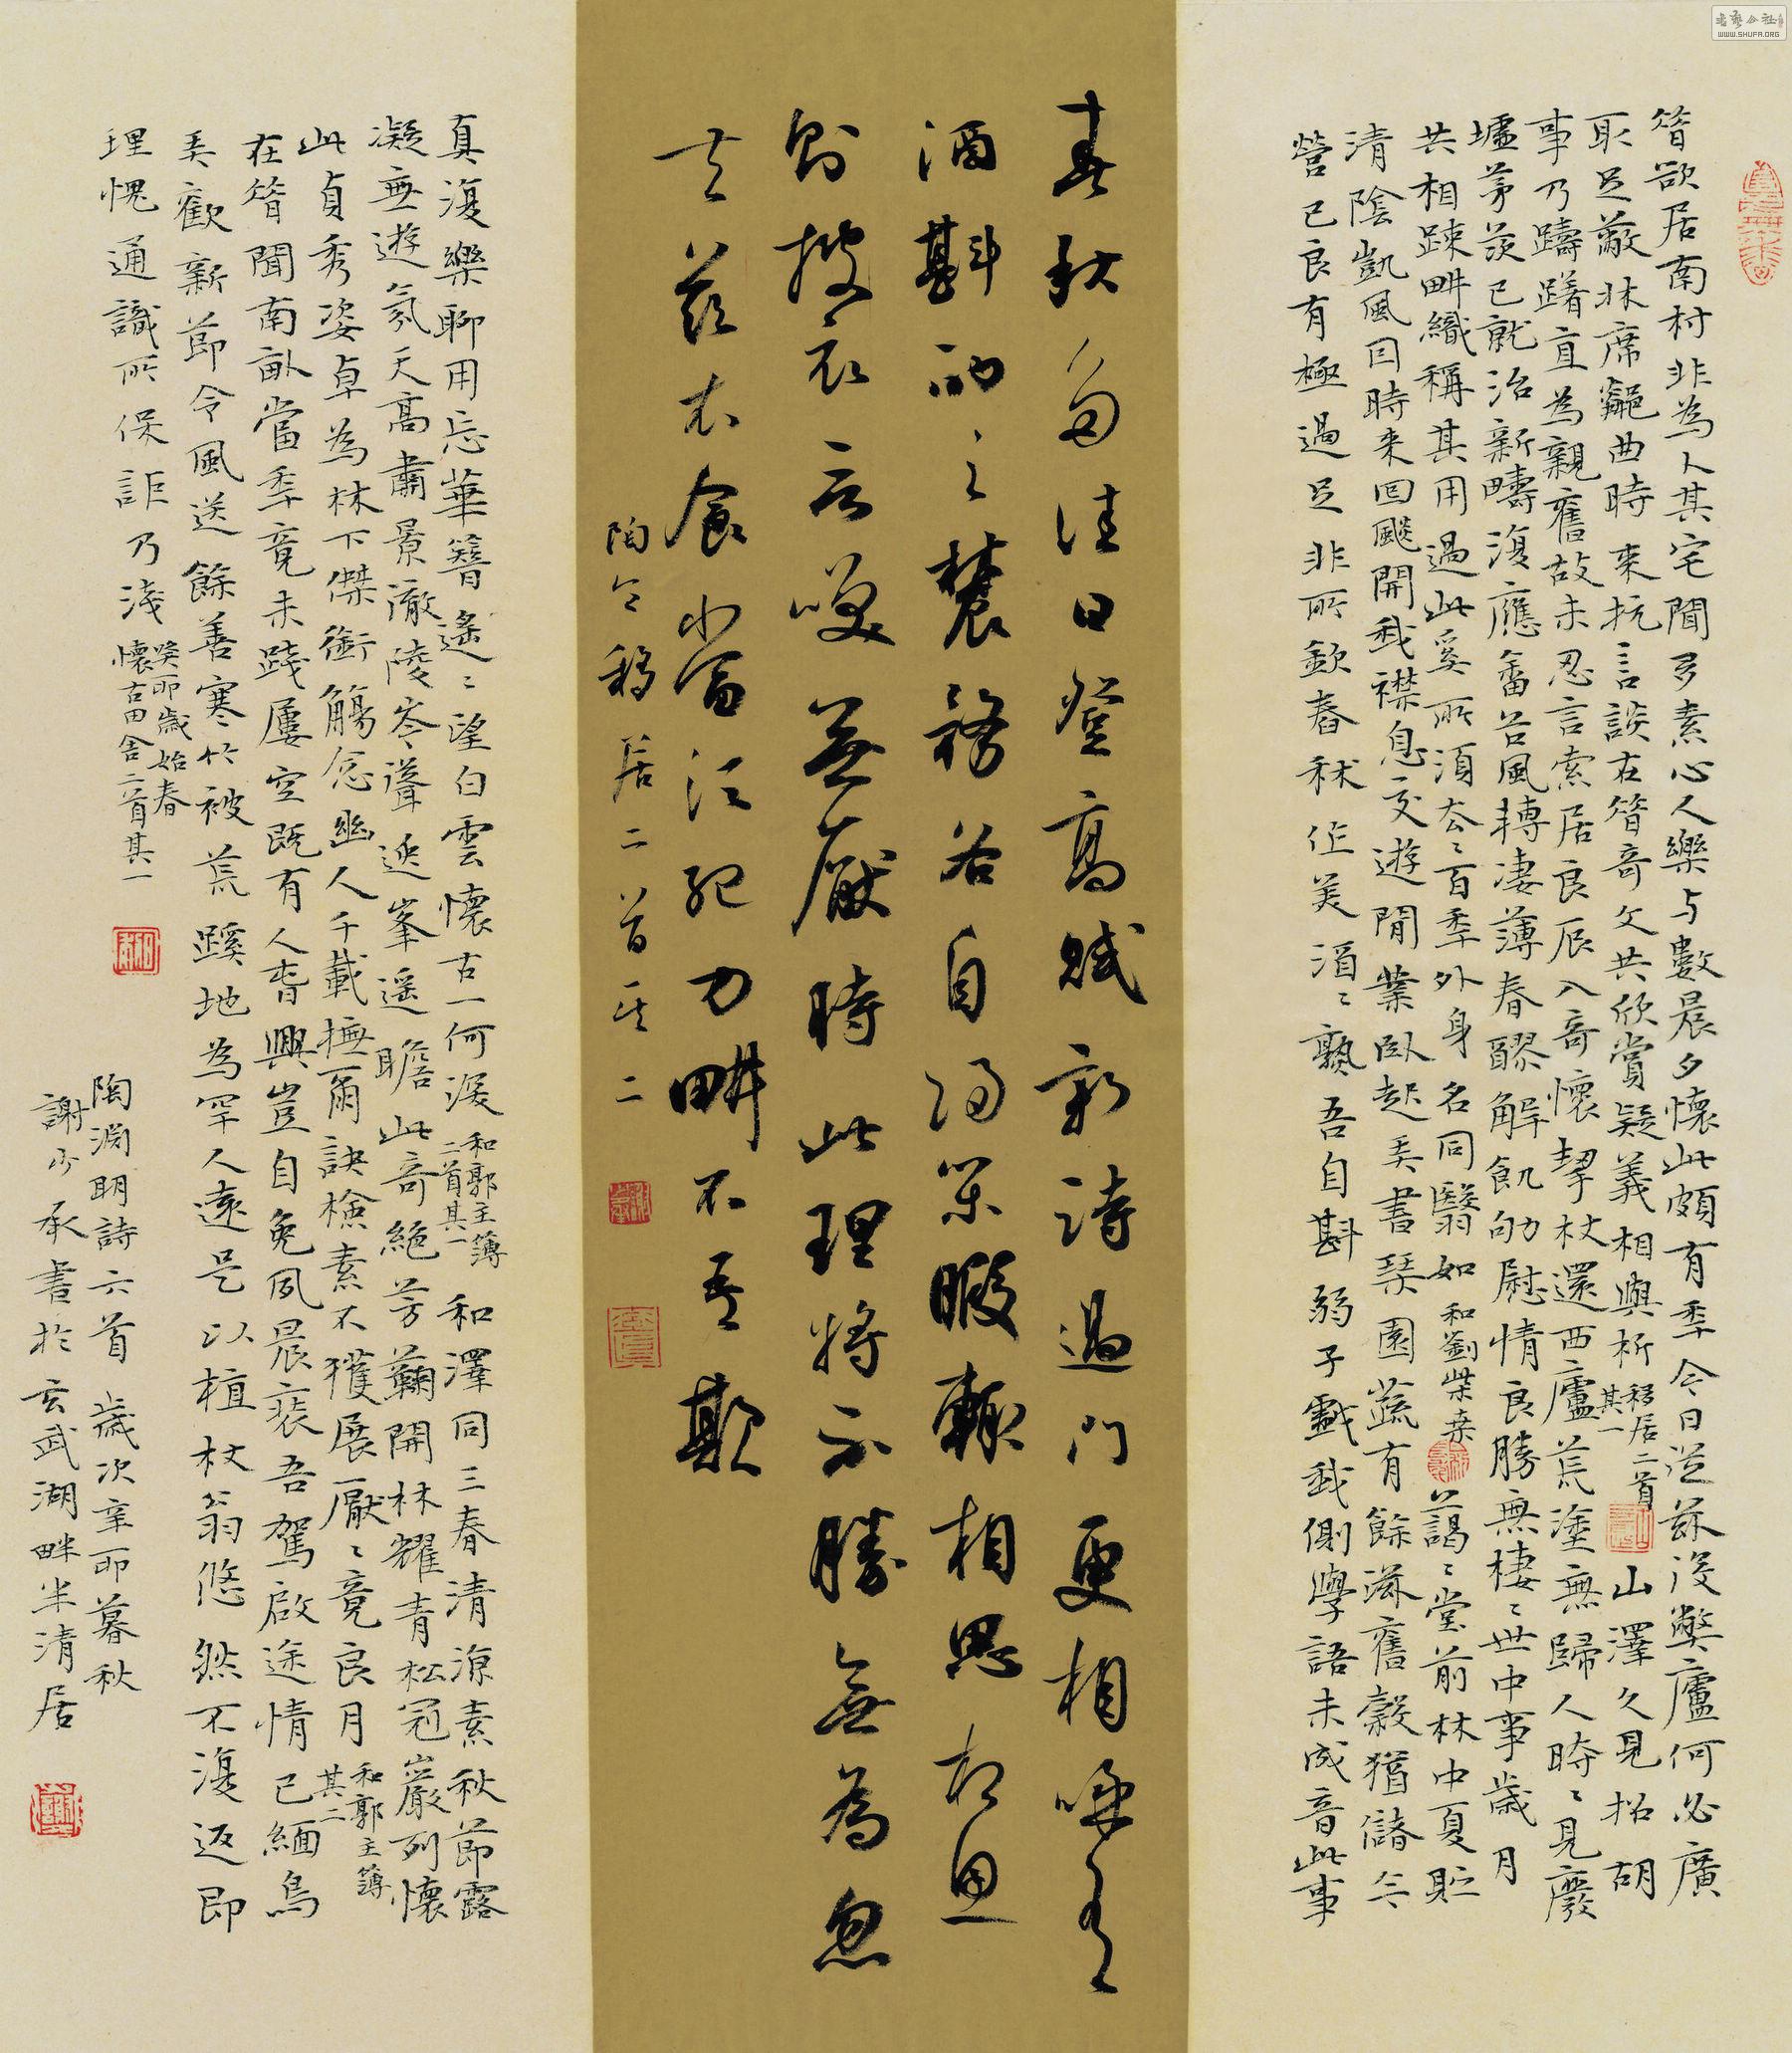 昔欲居南村非為卜其宅聞多素心人樂与數晨夕懷此頗有季今日從茲役獘廬何必廣
取足蔽牀席鄰曲時来抗言談在昔奇文共欣賞疑義相與析 移居二首其一 山澤久見招胡
事乃躊躇直為親舊故未忍言索居良辰入奇懷挈杖還西廬荒塗無歸人時〻見廢
墟茅茨已就治新疇復應畬谷風轉凄薄春醪解飢劬慰情良勝無棲〻世中事歲月
共相踈畊織稱其用過此奚所須厺〻百季外身名同翳如 和劉柴桑 藹〻堂前林中夏貯
清陰凱風因時来回飈開我襟息交遊閒業臥起弄書琴園蔬有餘滋舊穀猶儲今
營己良有極過足非所欽舂秫作美酒〻熟吾自斟弱子戱我側學語未成音此事
春秋多佳日登高賦新詩過門更相呼有
酒斟酌之農務各自歸閑暇輒相思相思
則披衣言笑無厭時此理將不勝無為忽
去茲衣食當須紀力畊不吾欺
陶令移居二首其二
真復樂聊用忘華簪遙〻望白雲懷古一何深 和郭主簿二首其一 和澤同三春清涼素秋節露
凝無遊氛天高肅景澈陵岑聳逸峯遥瞻此奇絕芳鞠開林耀青松冠巖列懷
此貞秀姿卓為林下傑銜觴念幽人千載撫爾訣檢素不獲展厭〻竟良月 和郭主簿其二
在昔聞南畝當季竟未踐屢空既有人春興豈自免夙晨裝吾駕啟途情已緬鳥
弄歡新節令風送餘善寒竹被荒蹊地為罕人遠是以植杖翁悠然不復返即
理愧通識所保詎乃淺 癸卯歲始春懷古田舍二首其一
陶淵明詩六首 歲次辛卯暮秋
謝少承書於玄武湖畔半清居
書藝公社
WWW.SHUFA.ORG